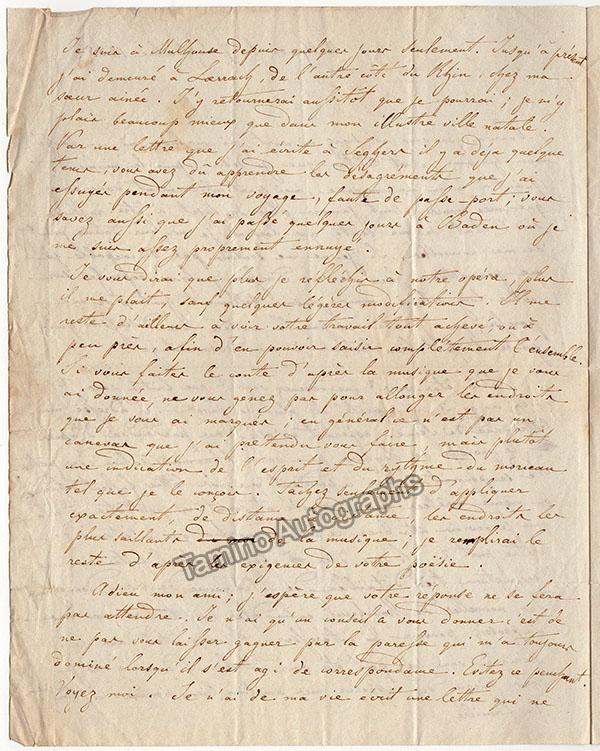 Je suis à Mulhouse depuis quelques jours seulement. Jusqu'à présent
j'ai demeuré à Lœrrach, de l'autre côté du Rhin, chez ma
sœur ainée. J'y retournerai aussitot que je pourrai; je m'y
plais beaucoup mieux que dans mon illustre ville natale.
Par une lettre que j'ai écrite à Seghers il y a déja quelque
tems, vous avez dû apprendre les désagréments que j'ai
essuyés pendant mon voyage, faute de passe-port; vous
savez aussi que j'ai passé quelques jours à Baden où je
me suis assez proprement ennuyé.
Je vous dirai que plus je reflèchis à notre opéra, plus
il me plait, sans quelques légères modifications. Il me
reste d'ailleurs à voir votre travail tout achevé, ou à
peu près, afin d'en pouvoir saisir complètement l'ensemble.
Si vous faites le conte d'après la musique que je vous
ai donnée, ne vous génez pas pour allonger les endroits
que je vous ai marqués; en général ce n'est pas un
canevas que j'ai prétendu vous faire, mais plutôt
une indication de l'esprit et du rythme du morceau
tel que je le conçois. Tachez seulement d'appliquer
exactement de distance en distance, les endroits les
plus saillants de la musique; je remplirai le
reste d'après les exigences de votre poësie.
Adieu mon ami; j'espère que votre réponse ne se fera
pas attendre. Je n'ai qu'un conseil à vous donner: c'est de
ne pas vous laisser gagner par la paresse qui m'a toujours
dominé lorsqu'il s'est agi de correspondance. Evitez ce penchant.
Voyez moi. Je n'ai de ma vie écrit une lettre qui ne
Tamino Autographs